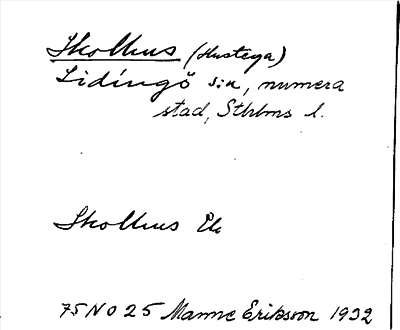 Skolhus (Hustega)
Lidingö sn, numera
stad, Sthlms l.
Skolhus Ek
75 NO 25 Manne Eriksson 1932